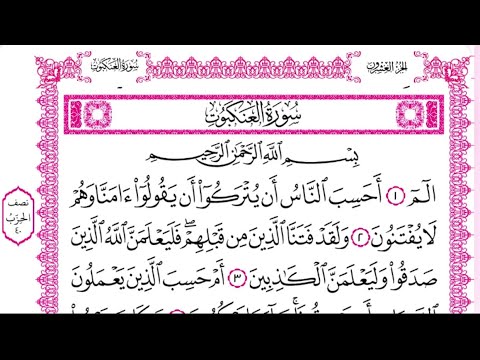 سُورَةُ العَنكَبُوتِ
الجُزْءُ العِشْرُونَ
سُورَةُ العَنكَبُوتِ
بِسْمِ ٱللَّهِ ٱلرَّحْمَٰنِ ٱلرَّحِيمِ
الٓمٓ ١ أَحَسِبَ ٱلنَّاسُ أَن يُتْرَكُوٓا۟ أَن يَقُولُوٓا۟ ءَامَنَّا وَهُمْ
لَا يُفْتَنُونَ ٢ وَلَقَدْ فَتَنَّا ٱلَّذِينَ مِن قَبْلِهِمْ ۖ فَلَيَعْلَمَنَّ ٱللَّهُ ٱلَّذِينَ
صَدَقُوا۟ وَلَيَعْلَمَنَّ ٱلْكَٰذِبِينَ ٣ أَمْ حَسِبَ ٱلَّذِينَ يَعْمَلُونَ
نصف
الحِزْب
٤٠